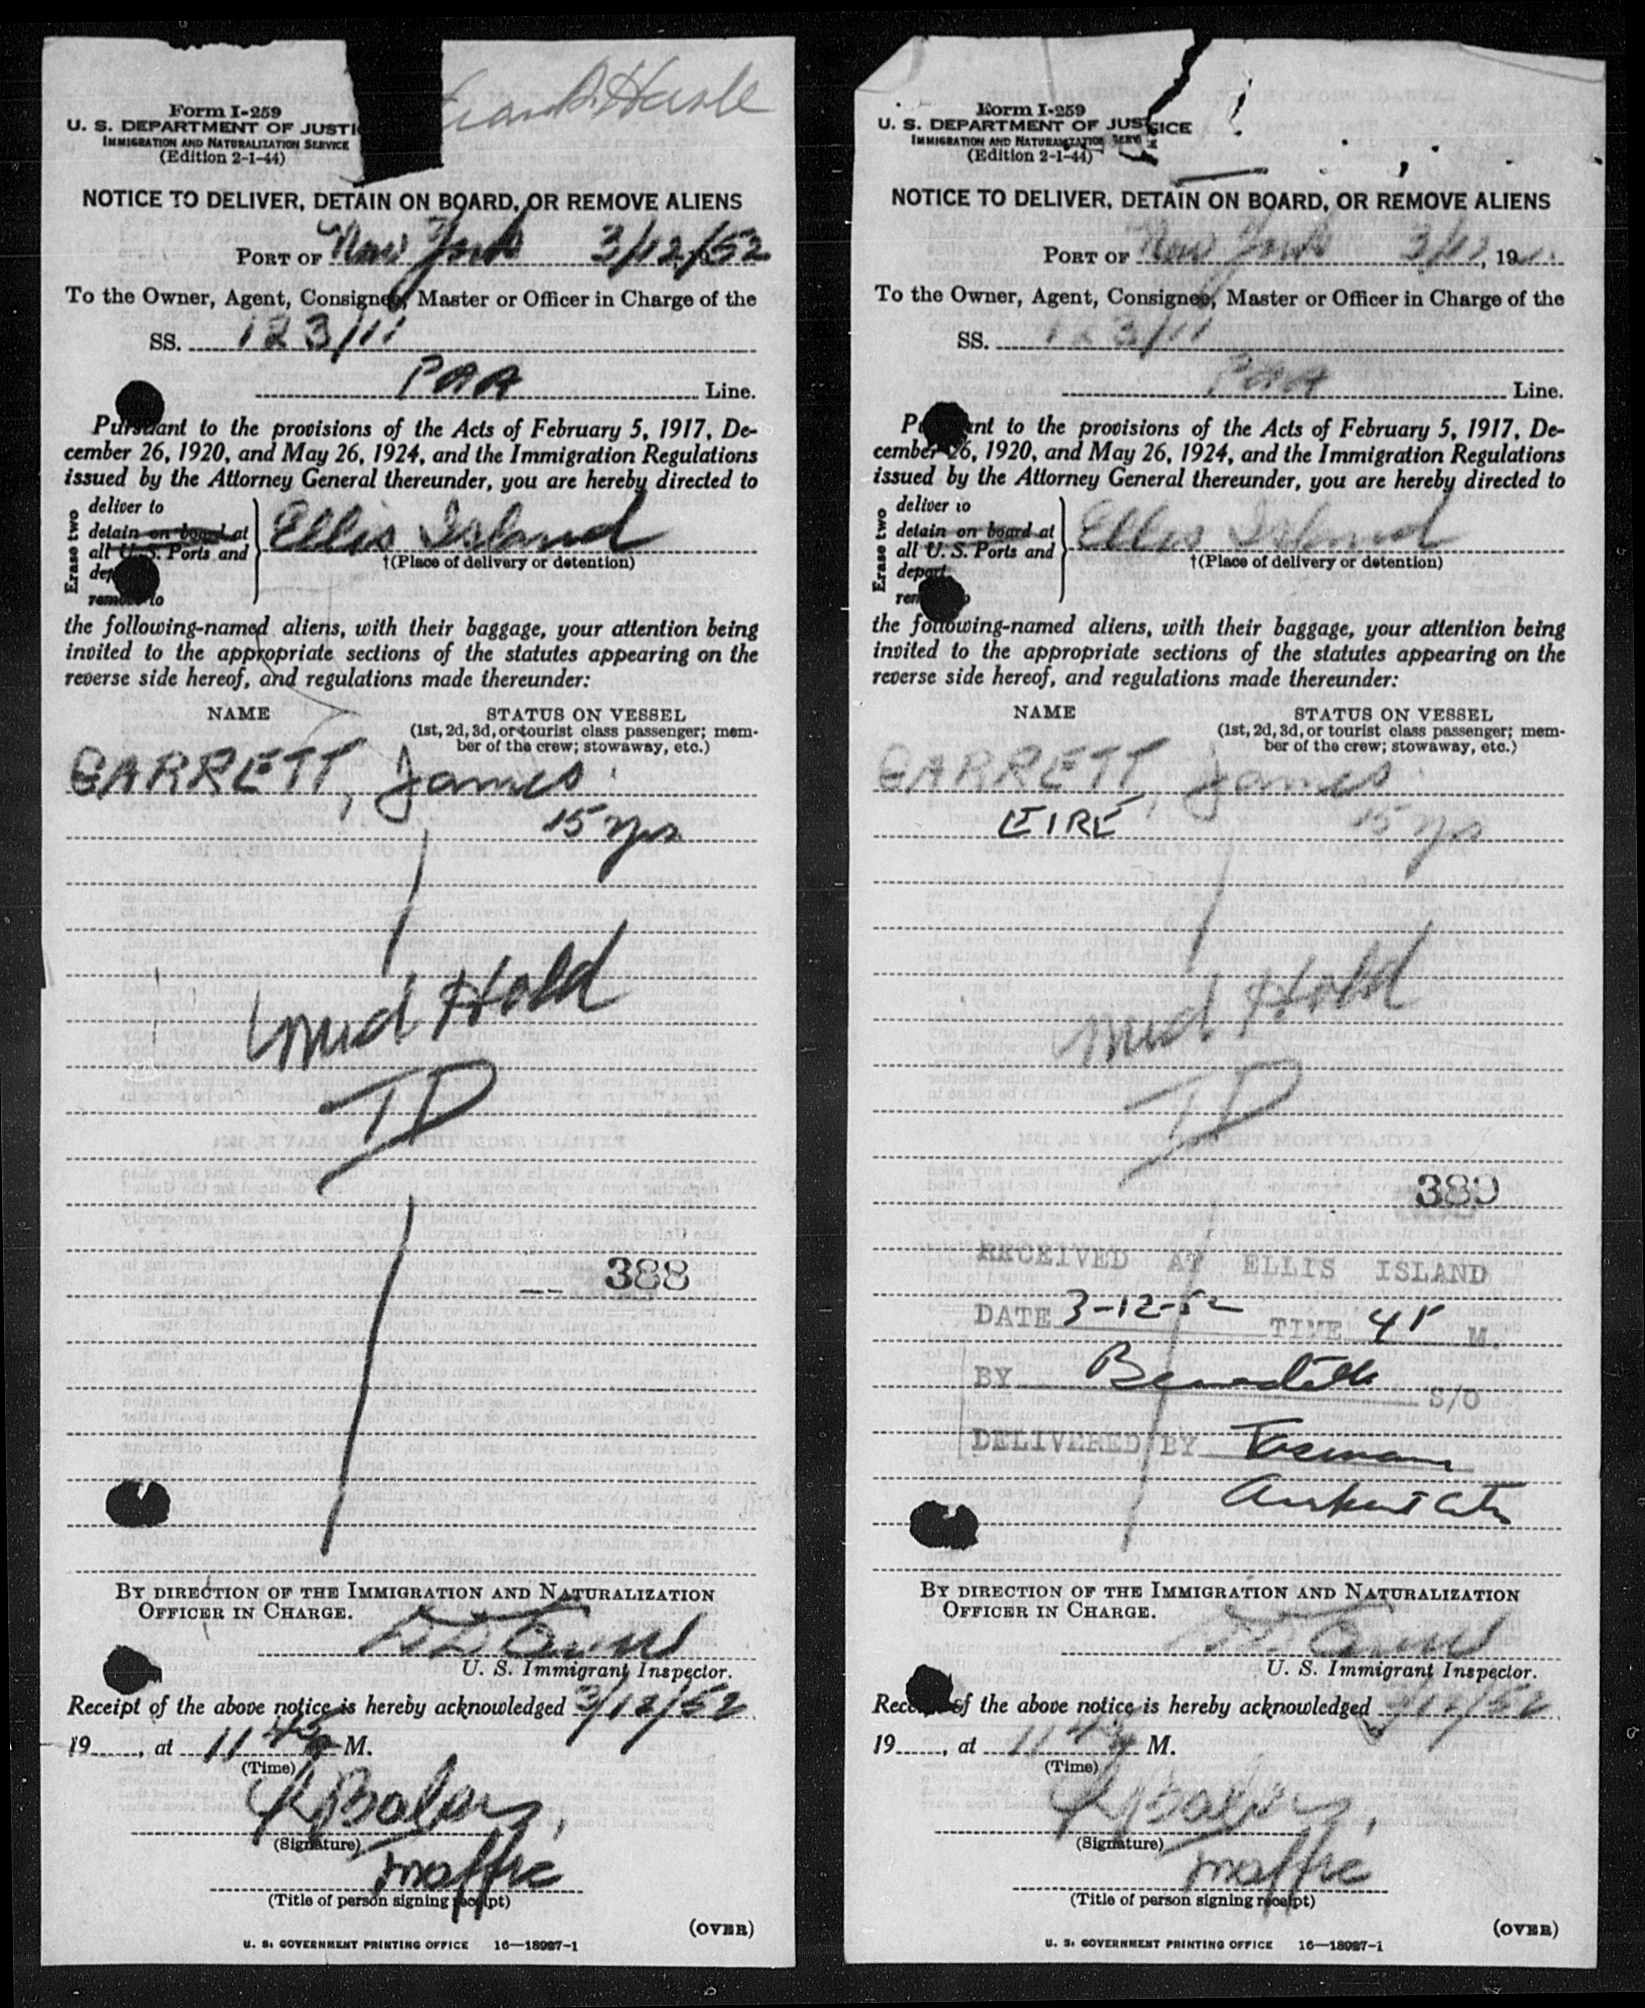 Form I-259
U. S. DEPARTMENT OF JUSTI
IMMIGRATION AND NATURALIZATION SERVICE
(Edition 2-1-44)
NOTICE TO DELIVER, DETAIN ON BOARD, OR REMOVE ALIENS
PORT OF New York 3/12/52
To the Owner, Agent, Consignee, Master or Officer in Charge of the
SS. 123/11
PAA Line.
Pursuant to the provisions of the Acts of February 5, 1917, De-
cember 26, 1920, and May 26, 1924, and the Immigration Regulations
issued by the Attorney General thereunder, you are hereby directed to
Erase two
deliver to
detain on board at
all U. S. Ports and
remove to
Ellis Island
†(Place of delivery or detention)
the following-named aliens, with their baggage, your attention being
invited to the appropriate sections of the statutes appearing on the
reverse side hereof, and regulations made thereunder:
NAME STATUS ON VESSEL
(1st, 2d, 3d, or tourist class passenger; mem-
ber of the crew; stowaway, etc.)
GARRETT, James
15 yrs
Med Hold
TD
388
BY DIRECTION OF THE IMMIGRATION AND NATURALIZATION
OFFICER IN CHARGE.
U. S. Immigrant Inspector.
Receipt of the above notice is hereby acknowledged 3/12/52
19____, at 11 45 M.
(Time)
(Signature)
Traffic
(Title of person signing receipt)
(OVER)
U. S. GOVERNMENT PRINTING OFFICE 16—18987-1
Form I-259
U. S. DEPARTMENT OF JUSTICE
IMMIGRATION AND NATURALIZATION SERVICE
(Edition 2-1-44)
NOTICE TO DELIVER, DETAIN ON BOARD, OR REMOVE ALIENS
PORT OF New York 3/12, 19
To the Owner, Agent, Consignee, Master or Officer in Charge of the
SS. 123/11
PAA Line.
Pursuant to the provisions of the Acts of February 5, 1917, De-
cember 26, 1920, and May 26, 1924, and the Immigration Regulations
issued by the Attorney General thereunder, you are hereby directed to
Erase two
deliver to
detain on board at
all U. S. Ports and
depart
Ellis Island
†(Place of delivery or detention)
the following-named aliens, with their baggage, your attention being
invited to the appropriate sections of the statutes appearing on the
reverse side hereof, and regulations made thereunder:
NAME STATUS ON VESSEL
(1st, 2d, 3d, or tourist class passenger; mem-
ber of the crew; stowaway, etc.)
GARRETT, James
EIRE 15 yrs
Med Hold
TD
389
RECEIVED AT ELLIS ISLAND
DATE 3-12-52 TIME 4P M.
BY S/O
DELIVERED BY
BY DIRECTION OF THE IMMIGRATION AND NATURALIZATION
OFFICER IN CHARGE.
U. S. Immigrant Inspector.
Receipt of the above notice is hereby acknowledged 3/12/52
19____, at 11 45 M.
(Time)
(Signature)
Traffic
(Title of person signing receipt)
(OVER)
U. S. GOVERNMENT PRINTING OFFICE 16—18987-1